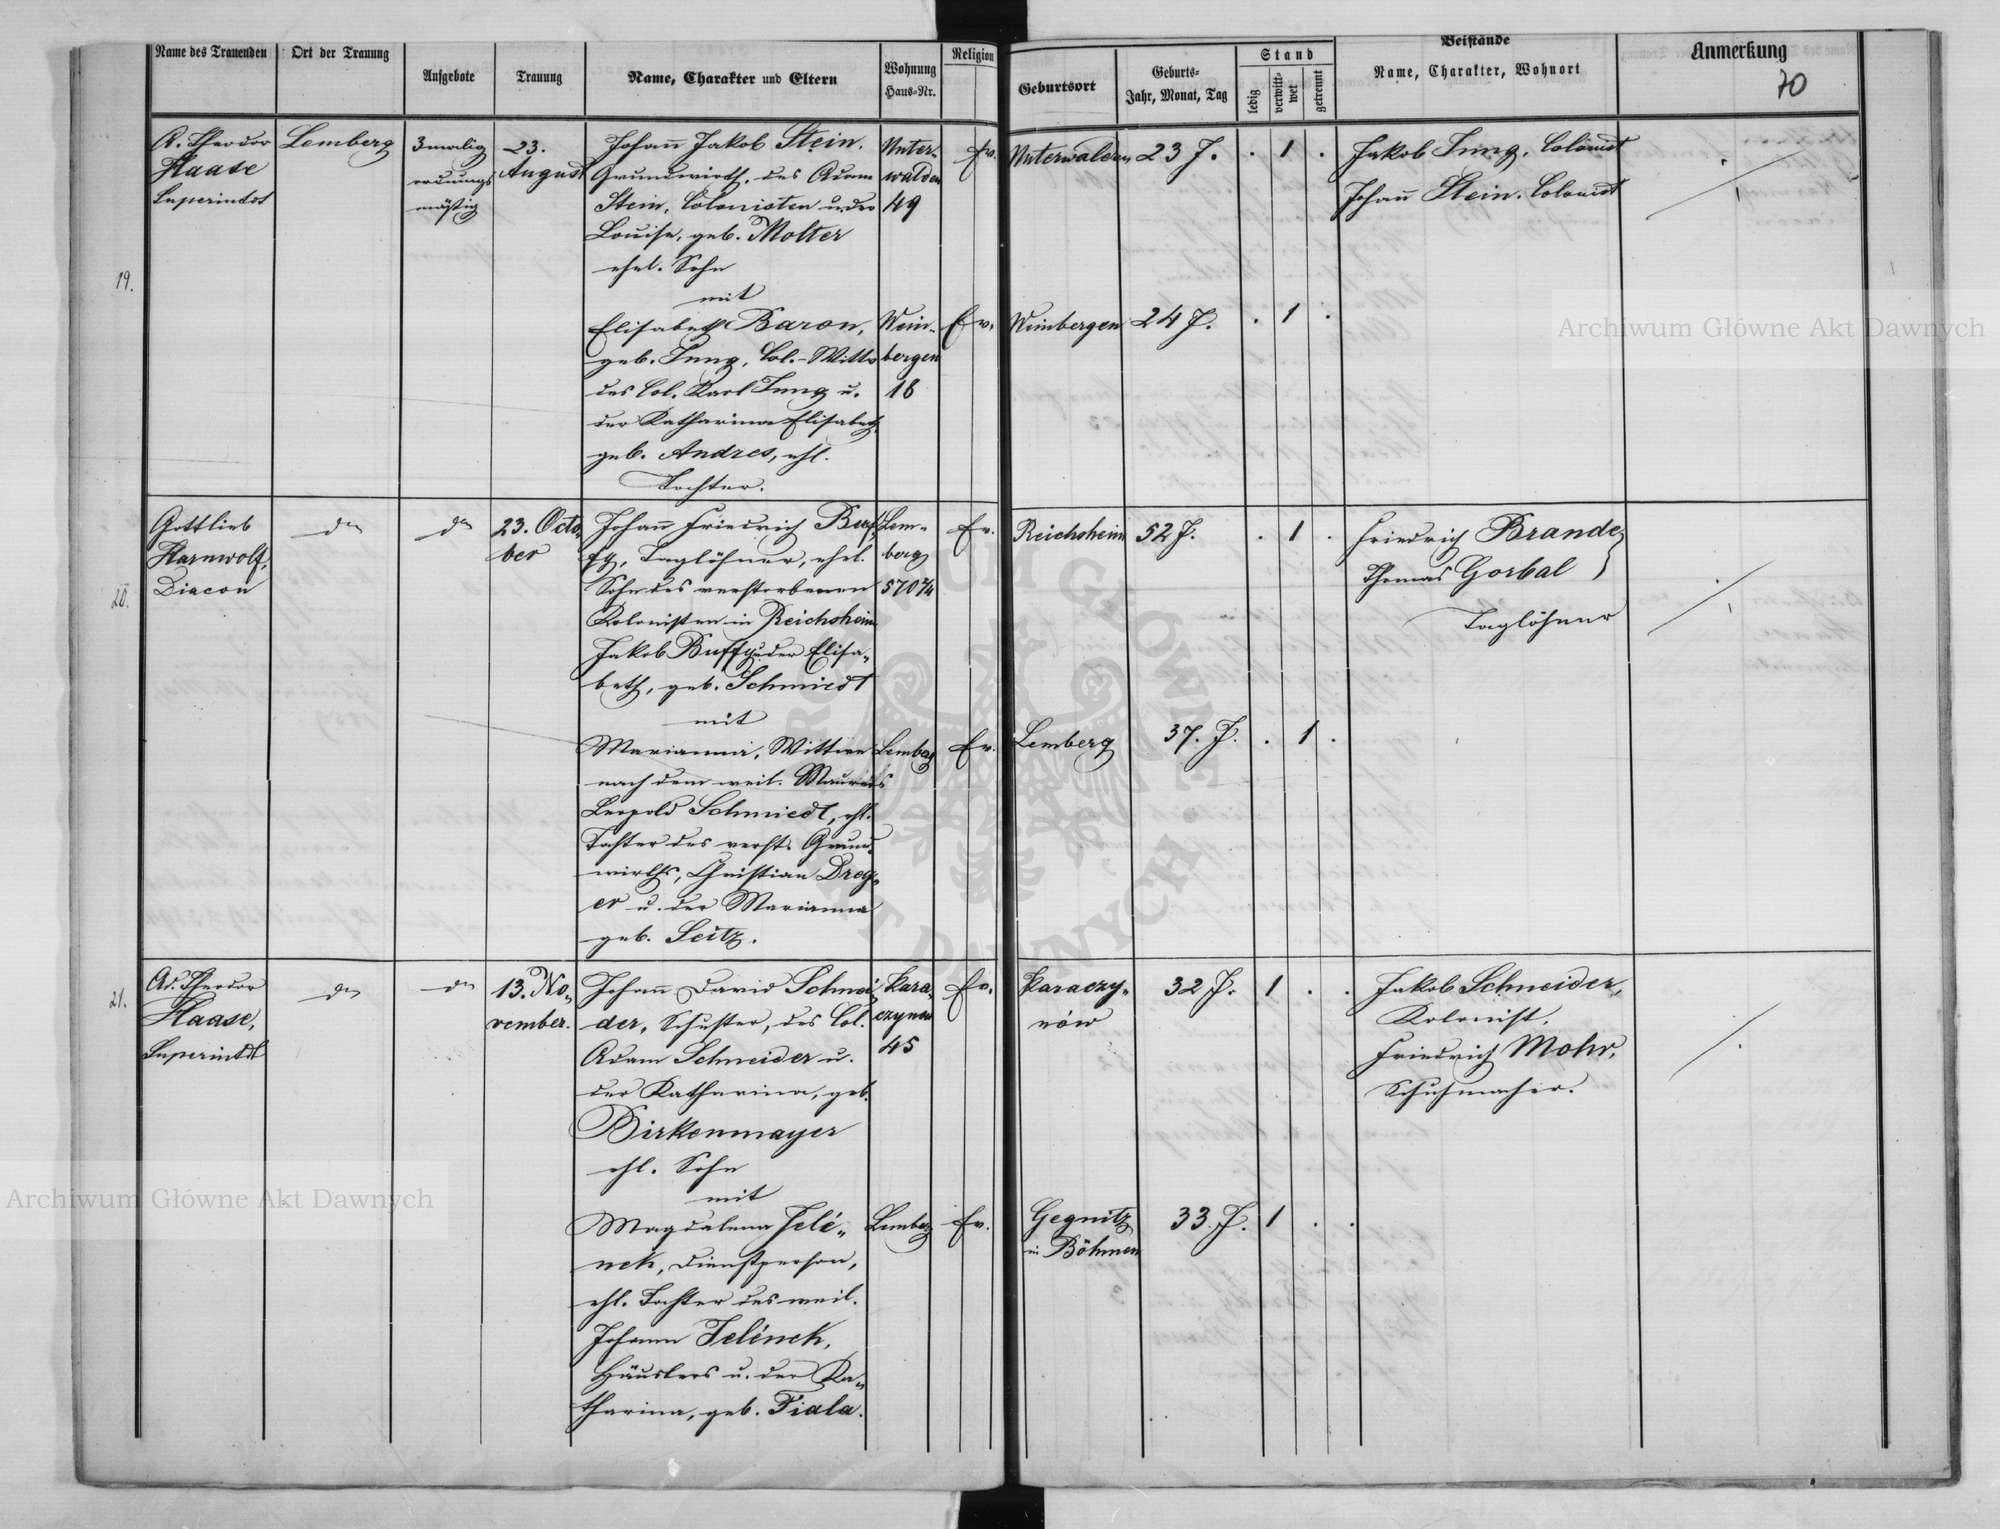 Name des Trauenden
Ort der Trauung
Aufgebote
Trauung
Name, Charakter und Eltern
Wohnung
Haus-Nr.
Religion
Geburtsort
Geburts-
Jahr, Monat, Tag
Stand
ledig
verwitt-
wet
getrennt
Beistände
Name, Charakter, Wohnort
Anmerkung
70
19.
A. Theodor
Haase
Superintdt
Lemberg
3malig
ordnungs
mäßig
23.
August
Johann Jakob Stein,
Grundwirth, des Adam
Stein, Colonisten u. der
Louise, geb. Molter
ehel. Sohn
mit
Elisabeth Baron,
geb. Jung, Col.-Wittw
des Col. Karl Jung u.
der Katharina Elisabeth,
geb. Andres, ehl.
Tochter.
Unter-
walden
49
Wein-
bergen
18
Ev.
Ev.
Unterwalden
Weinbergen
23 J. . 1 .
24 J. . 1 .
Jakob Jung, Colonist
Johann Stein, Colonist
20.
Gottlieb
Harnwolf,
Diacon
do
do
23. Octo-
ber
Johann Friedrich Buf-
fy, Taglöhner, ehel.
Sohn des verstorbenen
Kolonisten in Reichsheim
Jakob Buffy u. der Elisa-
beth, geb. Schmiedt
mit
Marianna, Wittwe
nach dem weil. Maurers
Leopold Schmiedt, ehl.
Tochter des verst. Grund-
wirths, Christian Dreg-
er u. der Marianna
geb. Seitz.
Lem-
berg
570 2/4
Lemberg
Ev.
Ev.
Reichsheim
Lemberg
52 J. . 1 .
37. J. . 1 .
Friedrich Brande,
Thomas Gorbal
Taglöhner
21.
Ad. Theodor
Haase,
Superintdt
do
do
13. No-
vember.
Johann David Schnei-
der, Schuster, des Col.
Adam Schneider u.
der Katharina, geb.
Birkenmayer
ehl. Sohn
mit
Magdalena Jelé-
nek, Dienstperson,
ehl. Tochter des weil.
Johann Jelének,
Häuslers u. der Ka-
tharina, geb. Fiala.
Kara-
czynow
45
Lemberg
Ev.
Ev.
Karaczy-
nów
Gegnitz
in Böhmen
32 J. 1 . .
33. J. 1 . .
Jakob Schneider,
Kolonist,
Friedrich Mohr,
Schuhmacher.
Archiwum Główne Akt Dawnych
Archiwum Główne Akt Dawnych
ARCHIWUM GŁÓWNE AKT DAWNYCH